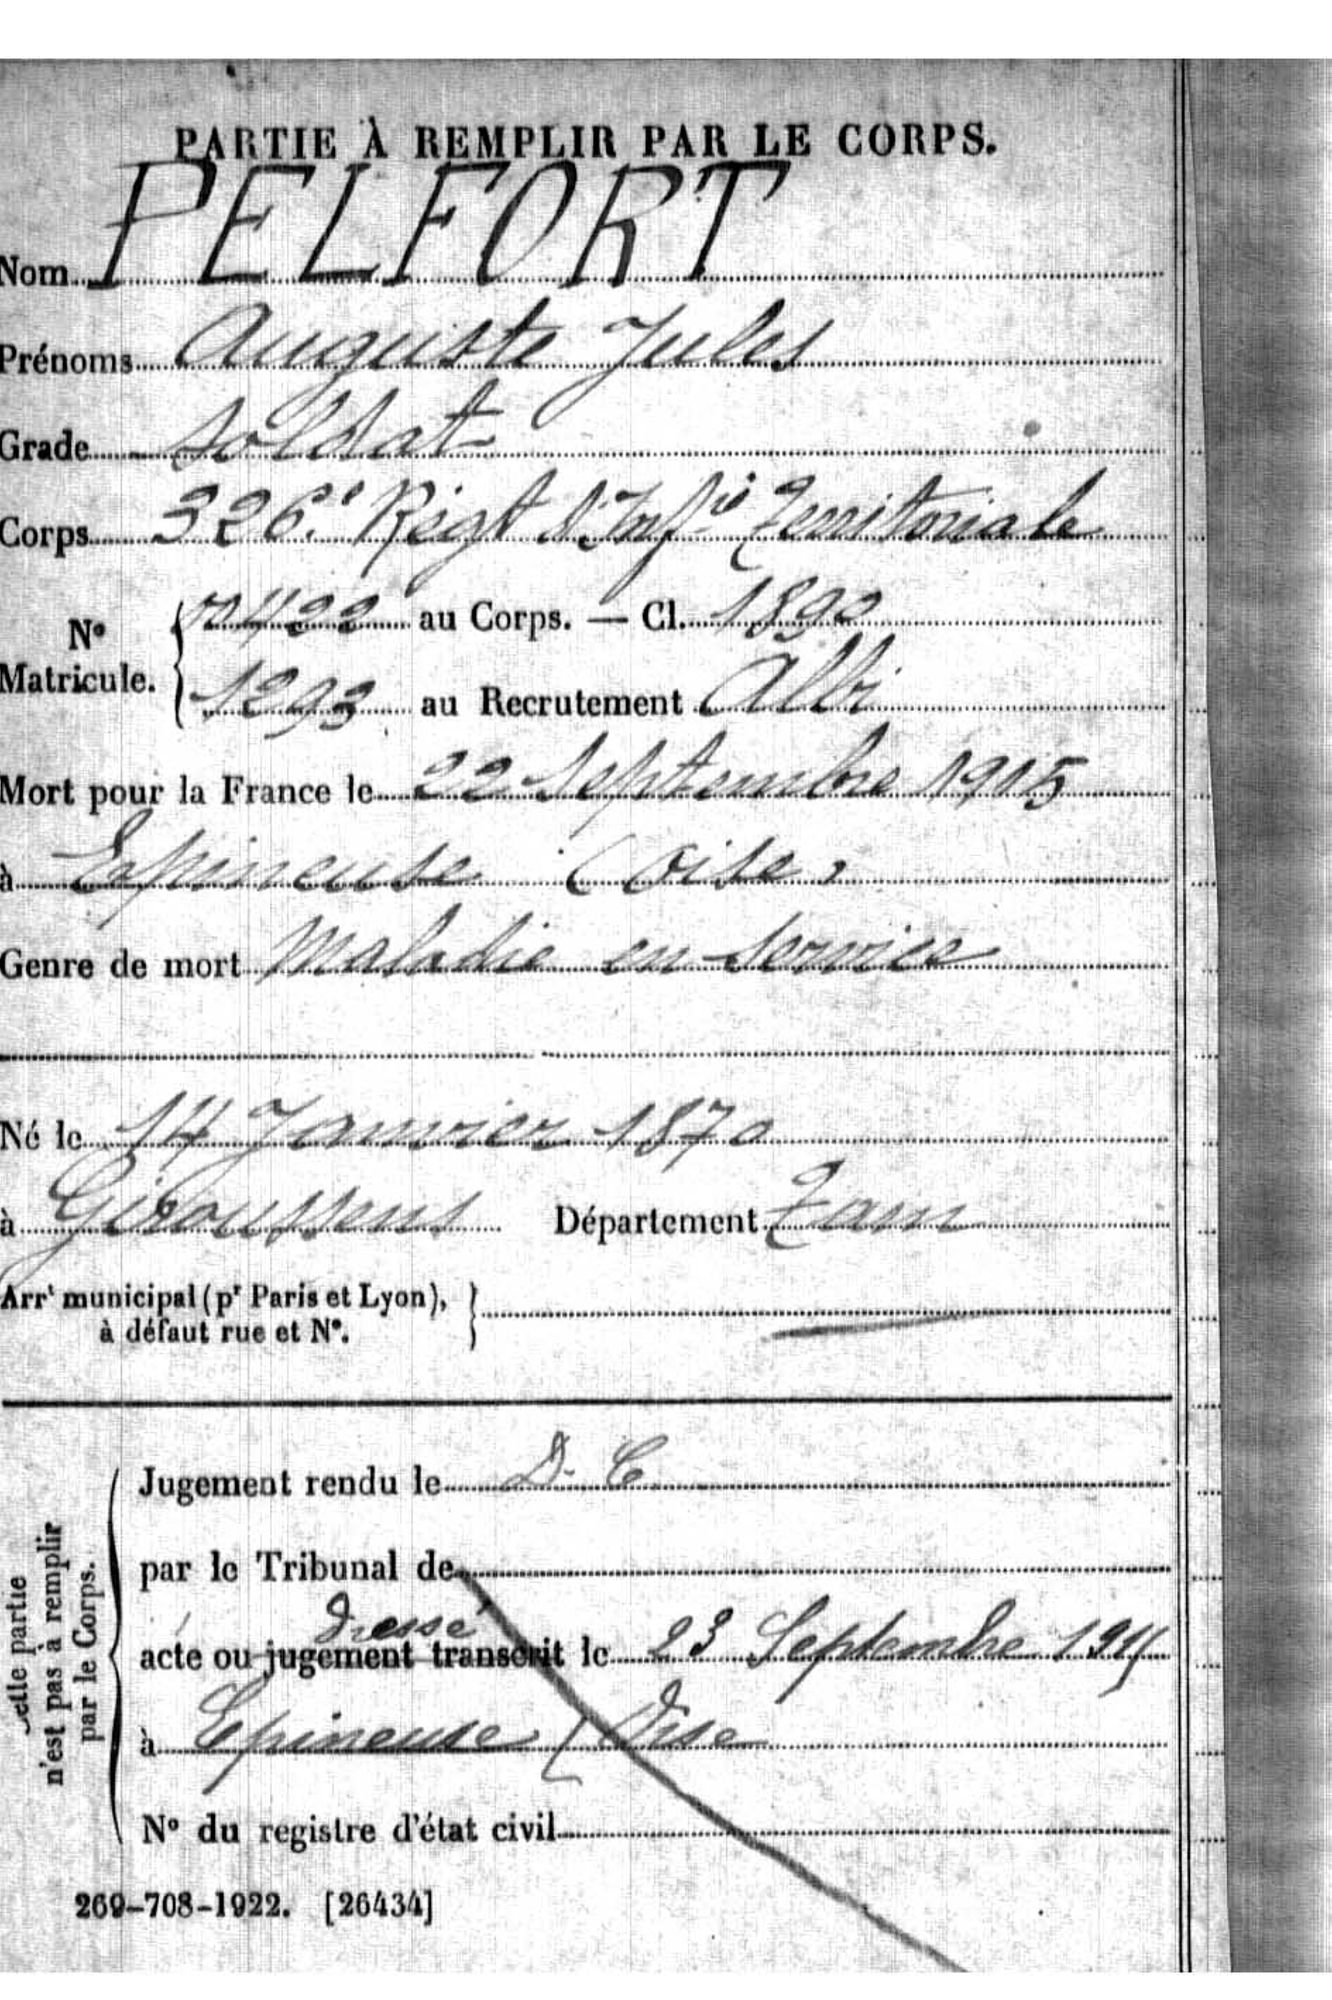 PARTIE À REMPLIR PAR LE CORPS.
Nom PELFORT
Prénoms Auguste Jules
Grade soldat
Corps 326e Régt d'Infie Territoriale
N° Matricule.
7422 au Corps. — Cl. 1890
1293 au Recrutement Albi
Mort pour la France le 22 Septembre 1915
à Epineuse (Oise)
Genre de mort Maladie en service
Né le 14 Janvier 1870
à Giroussens Département Tarn
Arrt municipal (pr Paris et Lyon), à défaut rue et N°.
Jugement rendu le D. C
par le Tribunal de
dressé
acte ou jugement transcrit le 23 Septembre 1915
à Epineuse (Oise
N° du registre d'état civil
elle partie n'est pas à remplir par le Corps.
269-708-1922. [26434]